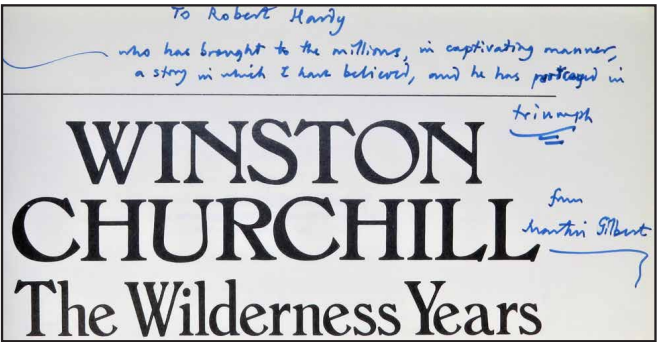 To Robert Hardy
who has brought to the millions, in captivating manner,
a story in which I have believed, and he has portrayed in
triumph
WINSTON
CHURCHILL
from
Martin Gilbert
The Wilderness Years